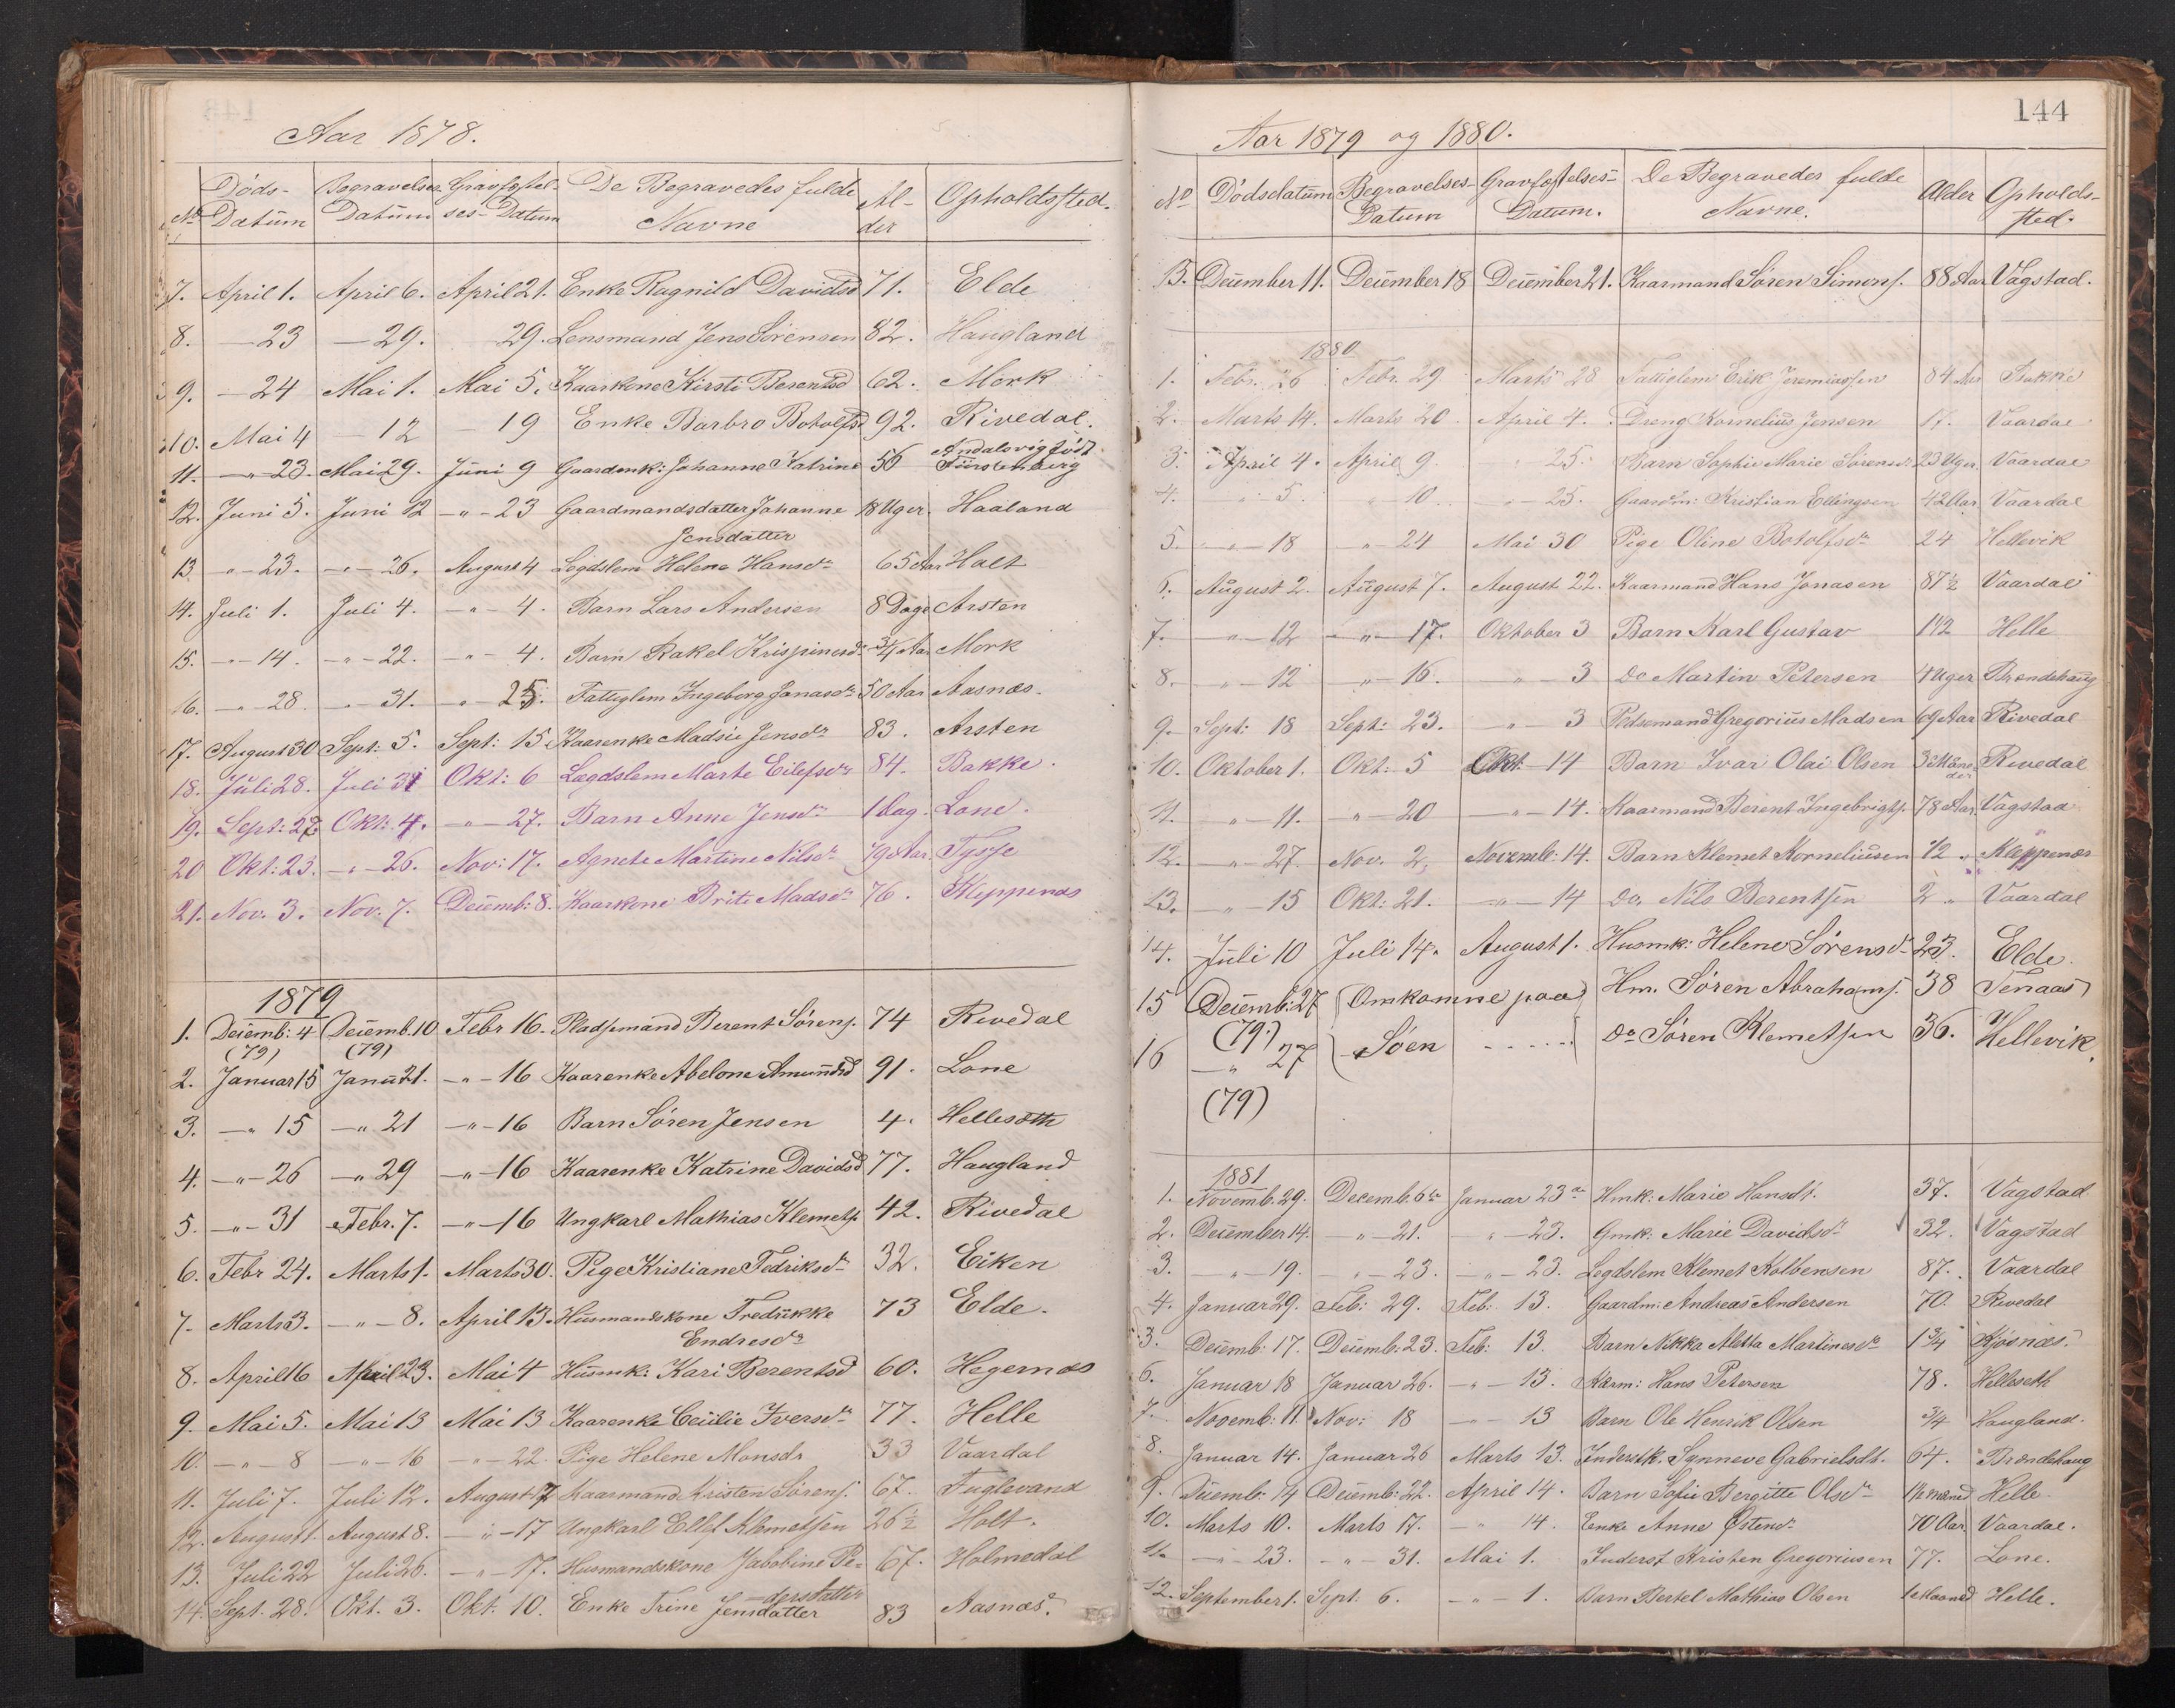 Aar 1878.
No Døds-Datum Begravelses Datum Gravfæstel-ses-Datum De Begravedes fulde Navne Al-der Opholdssted.
7. April 1. April 6. April 21. Enke Ragnild Davidsd 71. Elde
8. — 23 — 29. 29. Lensmand Jens Sørensen 82. Haugland
9. — 24 Mai 1. Mai 5. Kaarkone Kirsti Berentsd 62. Mork
10. Mai 4 — 12 — 19 Enke Barbro Botolfsd 92. Rivedal.
11. —"— 23. Mai 29. Juni 9 Gaardmk: Johanne Katrine 56 Andalsvig født
12. Juni 5. Juni 12 —"— 23 Gaardmandsdatter Johanne 18 Uger. Haaland
Jensdatter
13. —"— 23. —"— 26. August 4 Legdslem Helene Hansdr 65 Aar Holt
14. Juli 1. Juli 4. —"— 4. Barn Lars Andersen 8 Dage Arsten
15. —"— 14. —"— 22. —"— 4. Barn Rakel Krispinusdr 3/4 Aar Mork
16. —"— 28. —"— 31. —"— 25. Fattiglem Ingeborg Jonasdr 50 Aar Aasnæs.
17. August 30 Sept: 5. Sept: 15. Kaarenke Madsie Jensdr 83. Arsten
18. Juli 28. Juli 31 Okt: 6 Lægdslem Marte Eilefsdr 84. Bakke.
19. Sept: 27. Okt: 4. —"— 27. Barn Anne Jensdr 1 Dag. Lone.
20 Okt: 23. —"— 26. Nov: 17. Agnete Martine Nilsdr 79 Aar. Tysse
21. Nov. 3. Nov. 7. Decemb: 8. Kaarkone Brite Madsdr 76. Kleppenæs
1879
1. Decemb: 4 Decemb. 10 Febr 16. Pladsmand Berent Sørens. 74 Rivedal
(79) (79)
2. Januar 15 Janu 21. —"— 16 Kaarenke Abelone Amundsd 91. Lone
3. —" 15 —" 21 —"— 16 Barn Søren Jensen 4. Hellesøth
4. —"— 26 —" 29 —"— 16 Kaarenke Katrine Davidsd 77. Haugland
5. —"— 31 Febr. 7. —"— 16 Ungkarl Mathias Klemets. 42. Rivedal
6. Febr 24. Marts 1. Marts 30. Pige Kristiane Fedriksdr 32. Eiken
7. Marts 3. —"— 8. April 13. Husmandskone Fredrikke 73 Elde.
Endresdr
8. April 16 April 23. Mai 4 Husmk: Kari Berentsd 60. Hegernæs
9. Mai 5. Mai 13 Mai 13 Kaarenke Cecilie Iversdr 77. Helle
10. —"— 8 —"— 16 —"— 22. Pige Helene Monsdr 33 Vaardal
11. Juli 7. Juli 12. August 17 Kaarmand Kristen Sørens. 67. Fuglevand
12. August 1. August 8. —"— 17 Ungkarl Ellef Klemetsen 26½ Holt.
13. Juli 22 Juli 26. —"— 17. Husmandskone Jakobine Pe- 67. Holmedal
dersdatter
14. Sept. 28. Okt. 3. Okt. 10. Enke Trine Jensdatter 83 Aasnæs.
144
Aar 1879 og 1880.
No Dødsdatum Begravelses-Datum Gravfæstelses-Datum. De Begravedes fulde Navne. Alder Opholds-sted.
15. December 11. December 18 December 21. Kaarmand Søren Simons. 88 Aar Vagstad.
1880
1. Febr. 26 Febr. 29 Marts 28 Fattiglem Erik Jeremiassen 84 Aar Bakke
2. Marts 14. Marts 20 April 4. Dreng Kornelius Jensen 17. Vaardal
3. April 4. April 9. " 25. Barn Sophie Marie Sørensdr 23 Uger. Vaardal
4. —"— 5. —"— 10 —"— 25. Gaardm: Kristian Ellingsen 42 Aar. Vaardal
5. —"— 18 —"— 24 Mai 30 Pige Oline Botolfsdr 24 Hellevik
6. August 2. August 7. August 22. Kaarmand Hans Jonasen 87½ Vaardal
7. —"— 12 —"— 17. Oktober 3 Barn Karl Gustav 1½ Helle
8. —"— 12 —"— 16. —"— 3 do Martin Petersen 4 Uger Brendehaug
9. Sept: 18 Sept: 23. —"— 3 Pladsemand Gregorius Madsen 69 Aar Rivedal
10. Oktober 1. Okt: 5 Okt. 14 Barn Ivar Olai Olsen 3 Måne-der Rivedal
11. —"— 11. —"— 20 —"— 14. Kaarmand Berent Ingebrigts. 78 Aar. Vagstad
12. —"— 27. Nov. 2. Novemb: 14. Barn Klemet Korneliusen ½ " Kleppenæs
13. —"— 15 Okt: 21. —"— 14 do. Nils Berentsen 2 " Vaardal
14. Juli 10 Juli 14. August 1. Husmk: Helene Sørensd 23. Elde.
15 Decemb: 27 (Omkomne paa) Hm. Søren Abrahams. 38 Tenaas
(79.)
16 —"— 27 Søen ..... do Søren Klemetsen 36. Hellevik.
(79)
1881
1. Novemb. 29. Decemb. 6te Januar 23e Hmk: Marie Hansdt. 37. Vagstad
2. December 14. —"— 21. —"— 23. Gmk: Marie Davidsdr 32. Vagstad
3. —"— 19. —"— 23. —"— 23. Legdslem Klemet Kolbensen 87. Vaardal
4. Januar 29. Feb: 29. Feb: 13. Gaardm: Andreas Andersen 70. Rivedal
5. Decemb: 17. Decemb: 23. Feb: 13. Barn Nikka Aletta Martinusdr 1¾ Kjøsnæs.
6. Januar 18 Januar 26. —"— 13. Kårm: Hans Petersen 78. Helleseth
7. Novemb: 11. Nov: 18 —"— 13 Barn Ole Henrik Olsen ¾ Haugland.
8. Januar 14. Januar 26 Marts 13. Inderstk. Synneve Gabrielsdt. 64. Brendehaug
9. Decemb: 14 Decemb: 22. April 14. Barn Sofie Bergitte Olsdr 1½ maaned Helle
10. Marts 10. Marts 17. —"— 14. Enke Anne Østensdr 70 Aar Vaardal.
11. —"— 23. —"— 31. Mai 1. Inderst Kristen Gregoriusen 77. Lone.
12. September 1. Sept. 6. —"— 1. Barn Bertel Mathias Olsen 1 Maaned Helle.